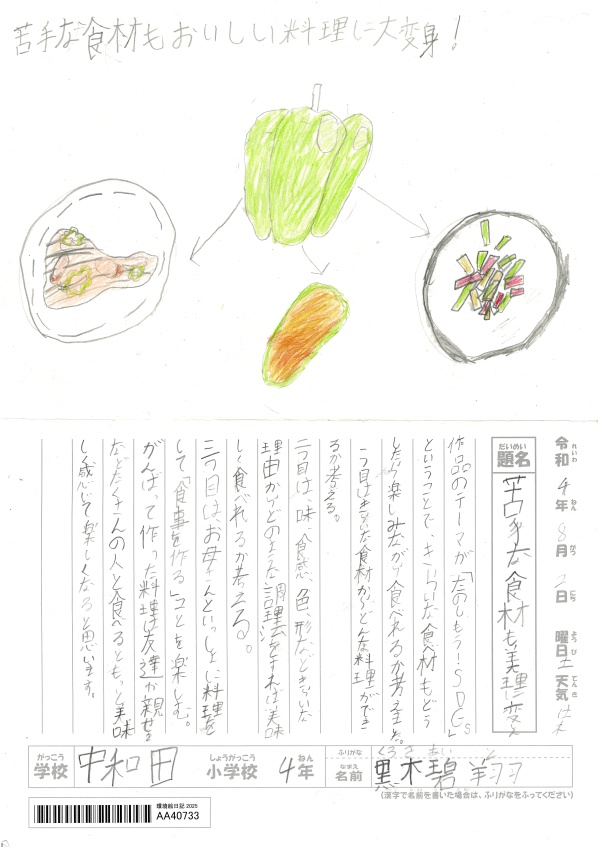 苦手な食材もおいしい料理に大変身!
令和 4年 8月 2日 曜日 土 天気
れいわ ねん がつ にち ようび てんき
だいめい
題名
苦手な食材も美
作品のテーマが「たのしもう!SDGs」
ということで、きらいな食材もどう
したら楽しみながら食べれるか考えました。
一つ目はきらいな食材からどんな料理ができ
るか考える。
二つ目は、味、食感、色、形などきらいな
理由からどのような調理法をすれば美味
しく食べれるか考える。
三つ目は、お母さんといっしょに料理を
して「食事を作る」ことを楽しむ。
がんばって作った料理は友達や親せき
などたくさんの人と食べるともっと美味
しく感じて楽しくなると思います。
がっこう
学校
中和田
しょうがっこう
小学校
4年
ねん
ふりがな
くろき あい
なまえ
名前
黒木碧翔
(漢字で名前を書いた場合は、ふりがなをふってください)
環境絵日記 2025
AA40733